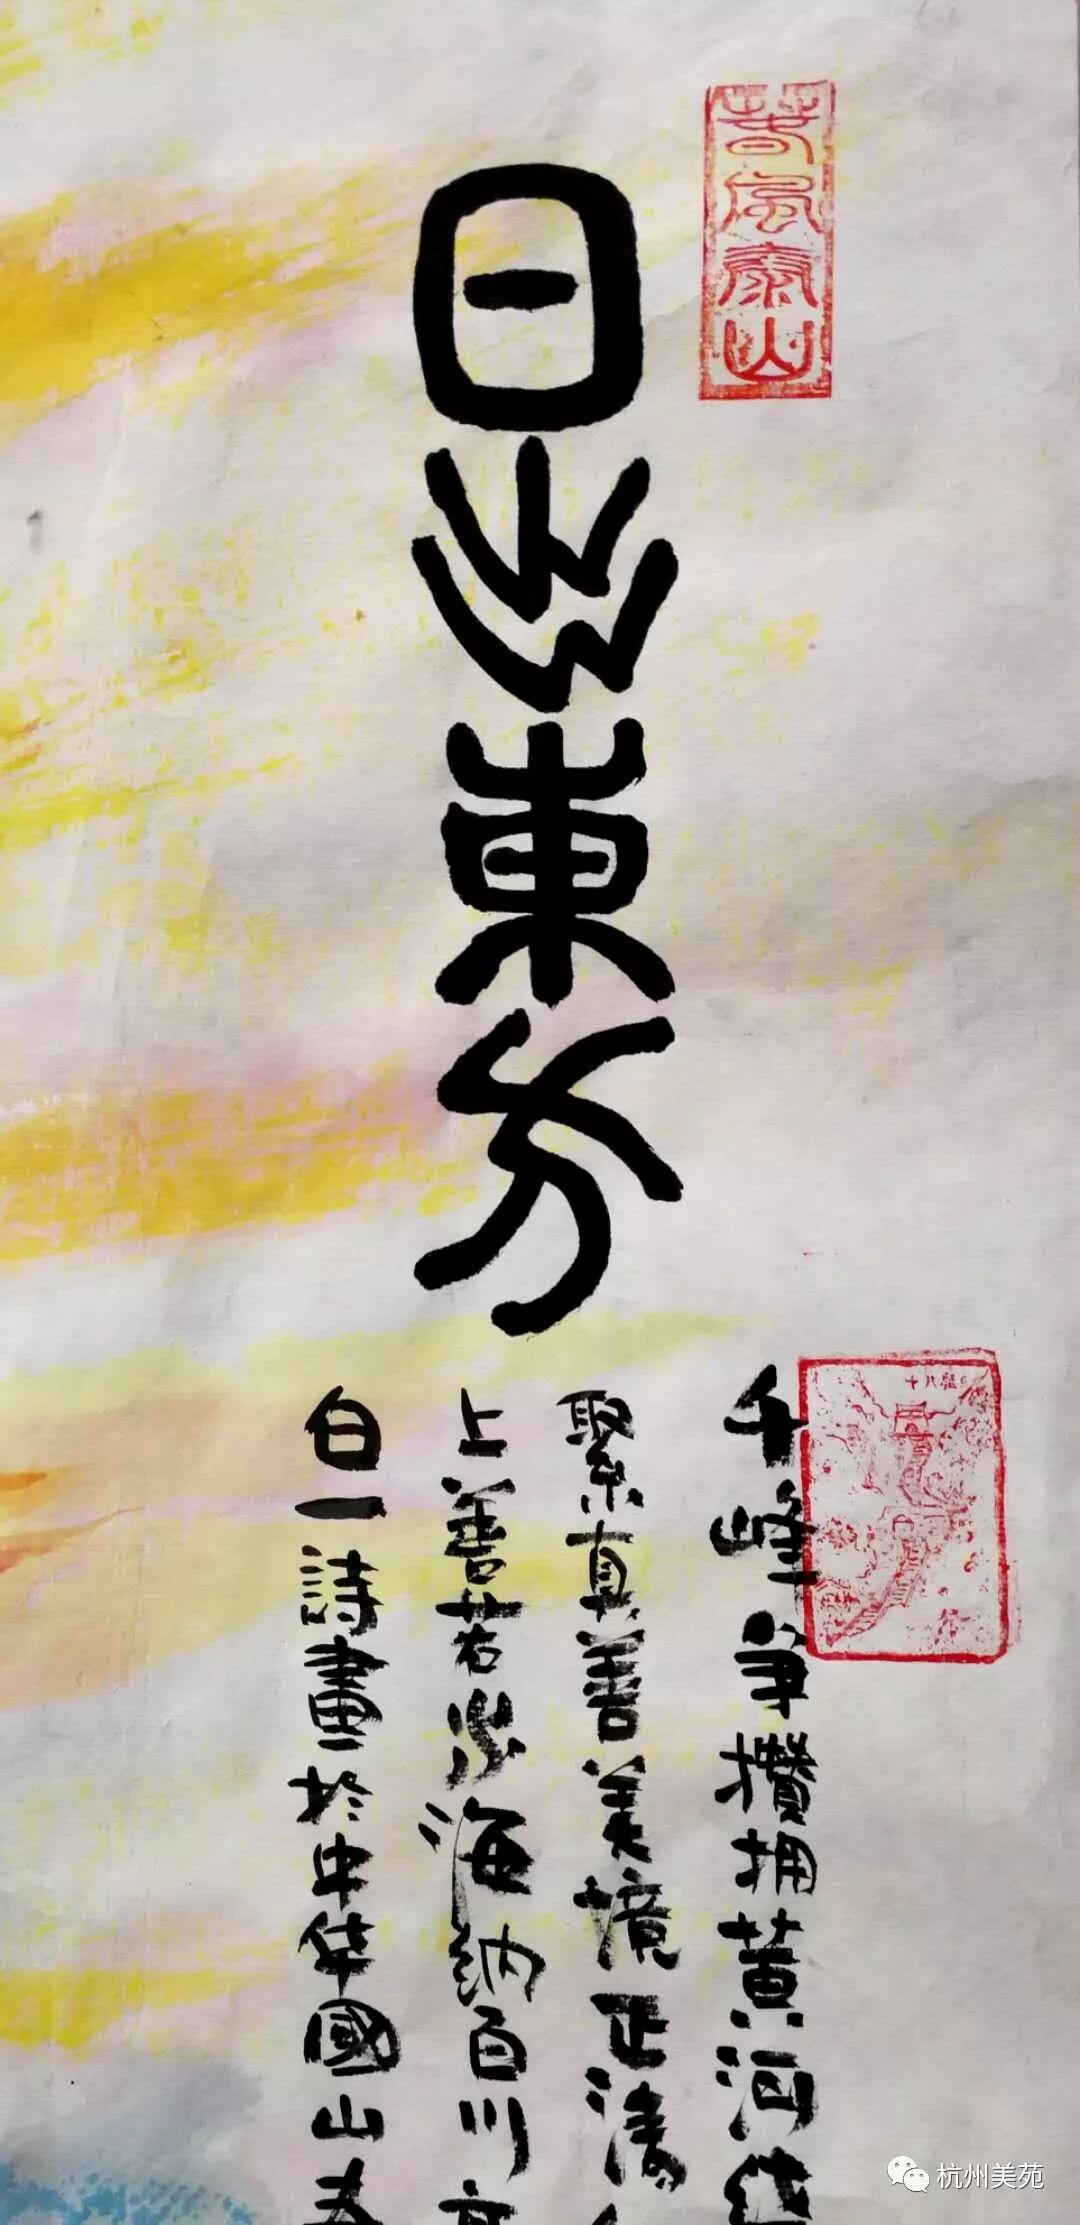 日出東方
千峰爭攢擁黃河
聚真善美境正清
上善若水海納百川
白一詩畫於中华國山
泰山
杭州美苑